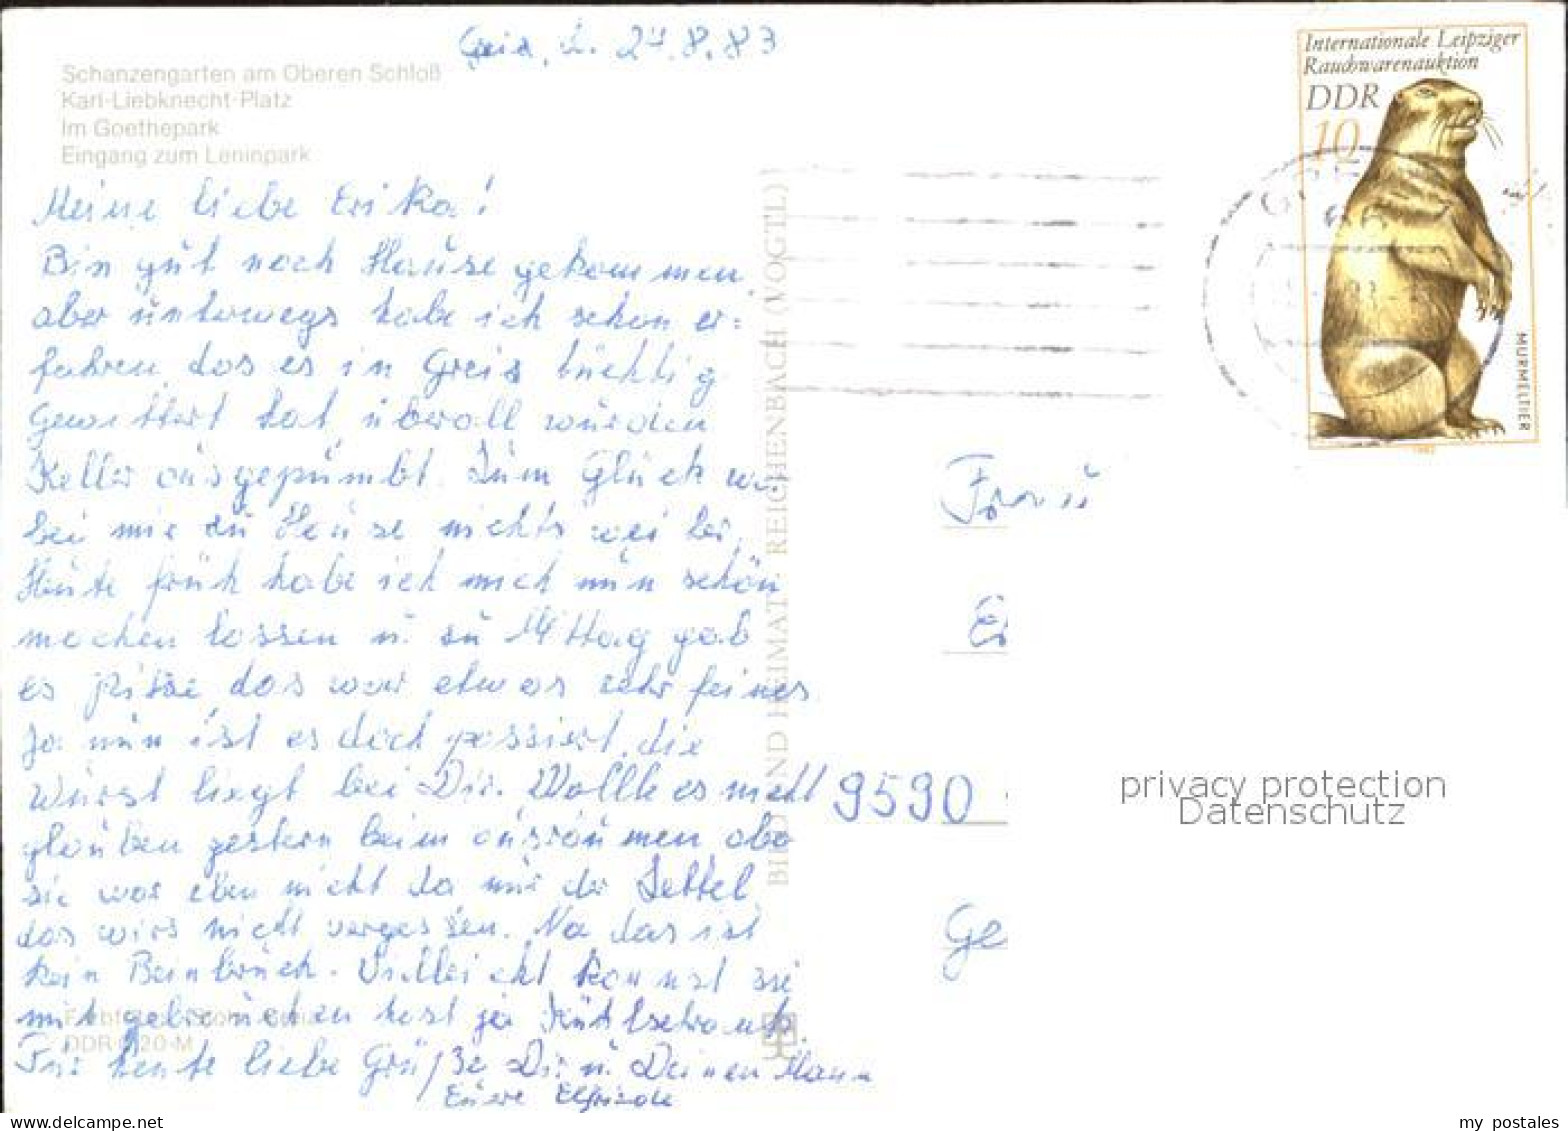 Greiz, d. 24.8.83
Schanzengarten am Oberen Schloß
Karl-Liebknecht-Platz
Im Goethepark
Eingang zum Leninpark
Internationale Leipziger
Rauchwarenauktion
DDR
10
MURMELTIER
1982
Meine liebe Erika!
Bin gut nach Hause gekommen,
aber unterwegs habe ich schon er=
fahren das es in Greiz tüchtig
Gewittert hat überall wurden
Keller ausgepumbt. Zum Glück war
bei mir zu Hause nichts
Heute früh habe ich mich nun schön
machen lassen u. zu Mittag gab
es Pilze das war etwas sehr feines.
Ja nun ist es doch passiert, die
Wurst liegt bei Dir. Wollte es nicht
glauben gestern beim ausräumen aber
sie war eben nicht da nur der Zettel
das wirs nicht vergessen. Na das ist
kein Beinbruch. Vielleicht kannst sie
mit gebrauchen hast ja Kühlschrank.
Für heute liebe Grüße Dir u. Deinen Mann
Eure Elfriede
BILD UND HEIMAT REICHENBACH (VOGTL)
Frau
9590
Ge
DDR
privacy protection
Datenschutz
my_postales